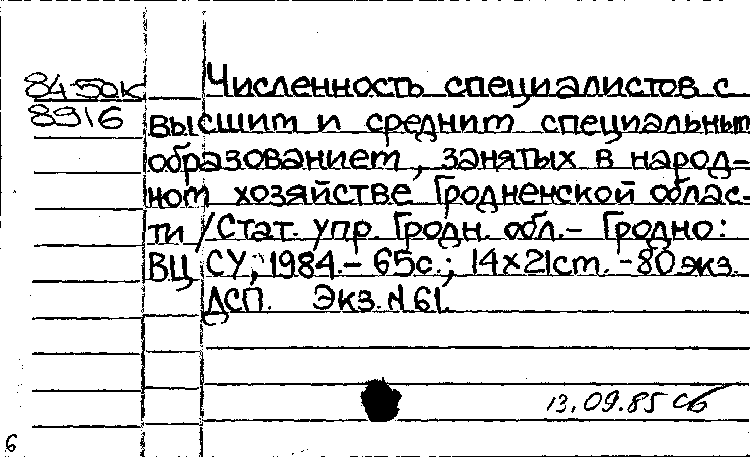 84-50к Численность специалистов с
8916 высшим и средним специальным
образованием, занятых в народ-
ном хозяйстве Гродненской облас-
ти /Стат. упр. Гродн. обл.- Гродно:
ВЦ СУ, 1984.- 65с.; 14х21см. -80экз.
ДСП. Экз. №61.
13.09.85 сб
6